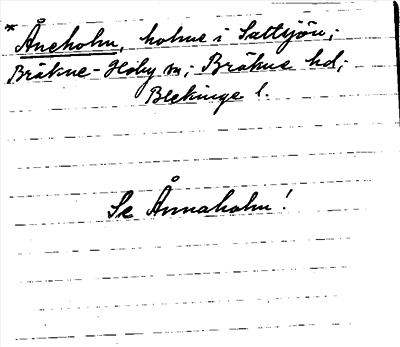 *Åneholm, holme i Saltsjön;
Bräkne-Hoby sn; Bräkne hd;
Blekinge l.
Se Ånnaholm!